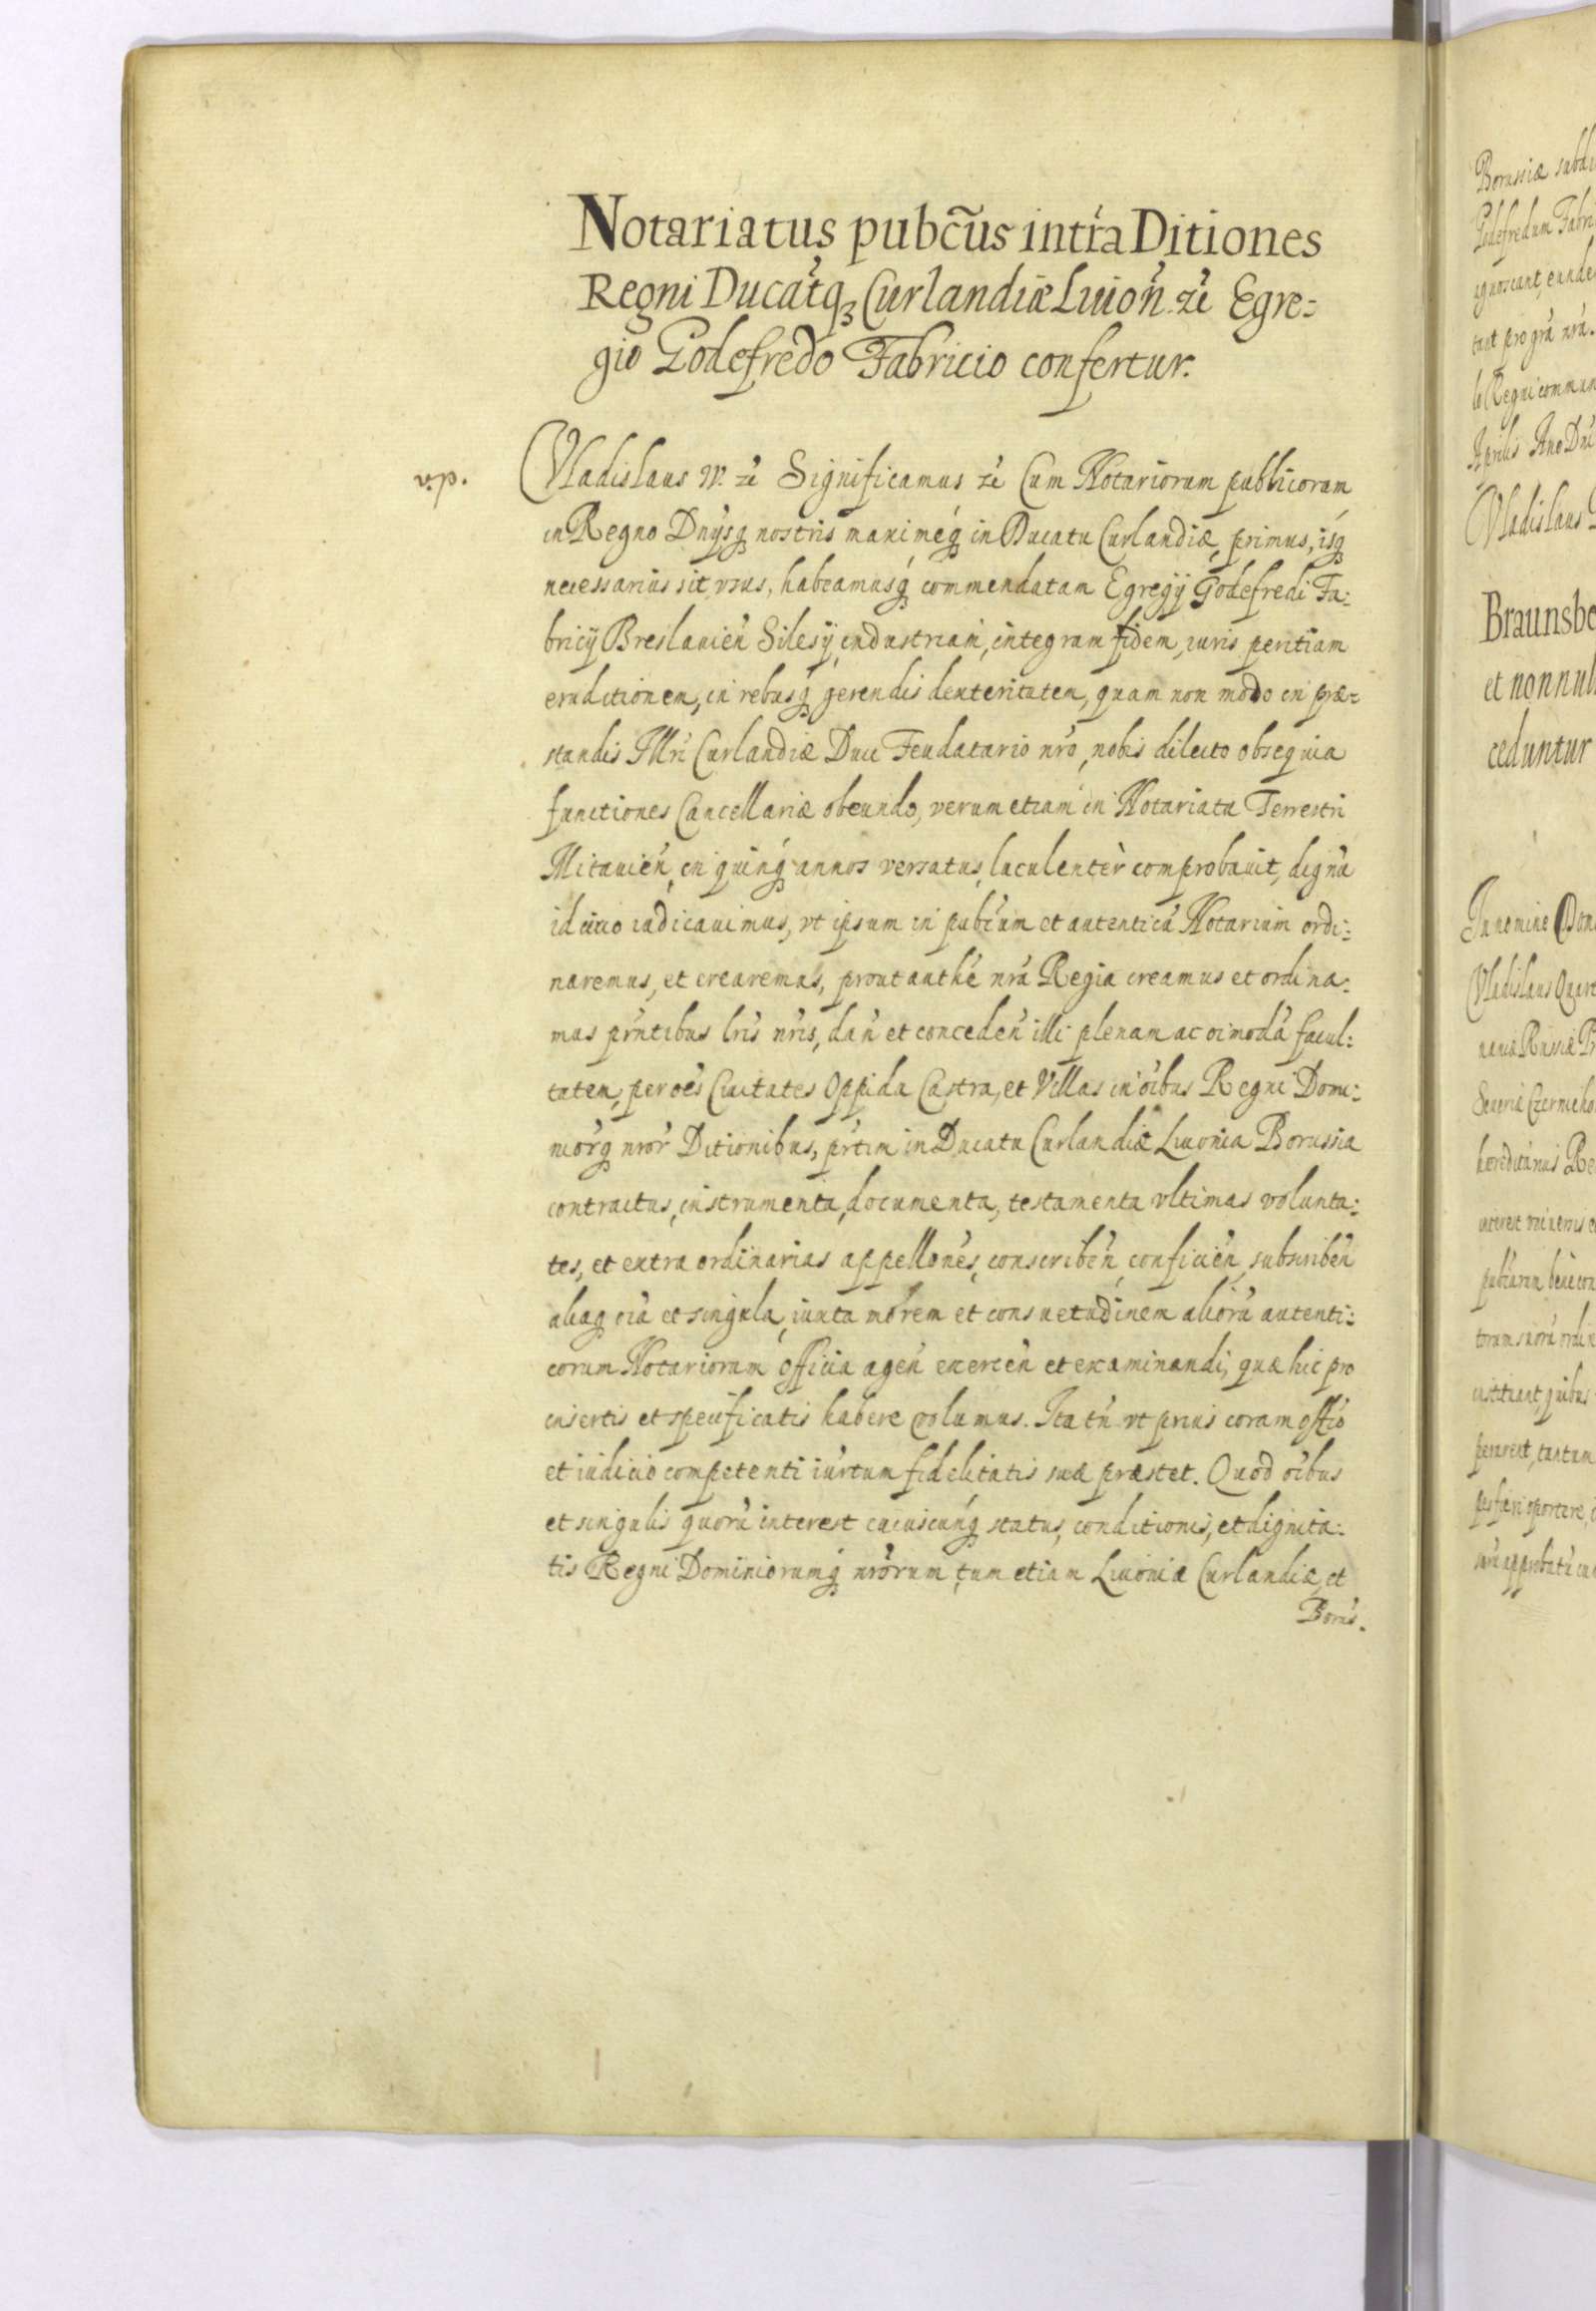 Notariatus pubc̃us intra Ditiones
Regni Ducatq₃ Curlandiæ Liuoñ. zē Egre=
gio Godefredo Fabricio confertur.
Vladislaus IV. zē Significamus zē Cum Notariorum publicorum
in Regno Dnijsq₃ nostris maximéq₃ in Ducatu Curlandiæ, primus, isq₃
necessarius sit vsus, habeamusq₃ commendatam Egregij Godefredi Fa:
bricij Breslauień Silesij industriam, integram fidem, iuris peritiam
eruditionem, in rebusq₃ gerendis dexteritatem, quam non modo in præ:
standis Illri Curlandiæ Duci Feudatario nr̃o, nobis dilecto obsequia
functiones Cancellariæ obeundo, verum etiam in Notariatu Terrestri
Mitauień, in quinq₃ annos versatus, luculentèr comprobauit, dignũ
id circo iudicauimus, vt ipsum in pubc̃um et autenticũ Notarium ordi:
naremus, et crearemus, prout authe nr̃a Regia creamus et ordina:
mus pr̃ntibus lr̃is nr̃is, dań et conceden̄ illi plenam ac oimodã facul:
tatem, per oẽs Ciuitates Oppida Castra, et Villas in oĩbus Regni Domi:
niorq₃ nror Ditionibus, pr̃tim in Ducatu Curlandiæ Liuonia Borussia
contractus, instrumenta, documenta, testamenta vltimas volunta:
tes, et extra ordinarias appellones, conscribeń, conficień, subscribeń
aliaq₃ oĩa et singula, iuxta morem et consuetudinem aliorũ autenti:
corum Notariorum officia ageń exerceń et examinandi, quæ hic pro
insertis et specificatis habere volumus. Ita tñ vt prius coram offic̃o
et iudicio competenti iurtum fidelitatis suæ præstet. Quod oĩbus
et singulis quorũ interest cuiuscunq₃ status, conditionis, et dignita:
tis Regni Dominiorumq₃ nrorum, tum etiam Liuoniæ Curlandiæ, et
Borus.
Borussiæ
Godefredum Fabri
tant pro
Regni commun
Aprilis Ano Dni
Vladislaus
Braunsbe
et nonnul
ceduntur
In nomine Domi
Vladislaus Quart
Russiæ
Seueriæ Czernieho
hæreditarius Re